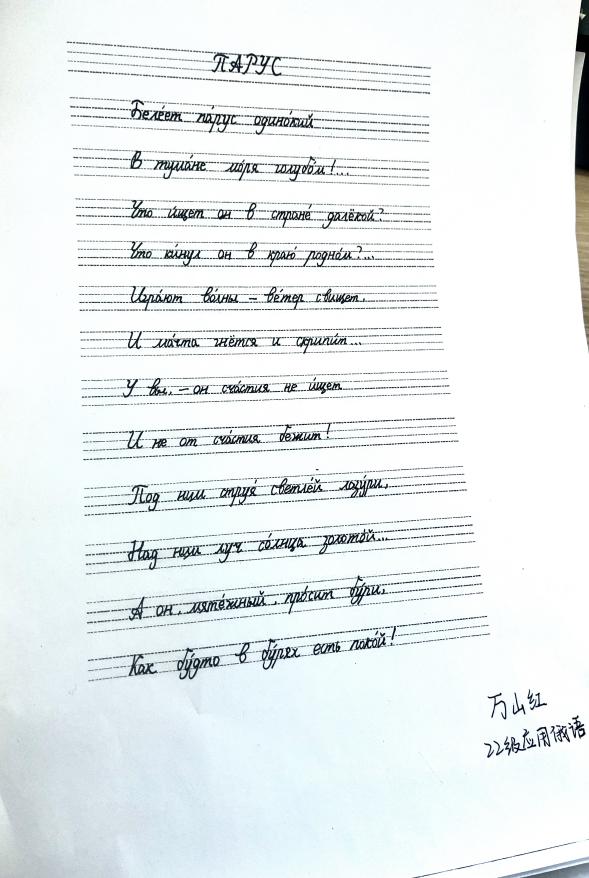 ПАРУС
Беле́ет па́рус одино́кий
В тума́не мо́ря голубо́м!...
Что и́щет он в стране́ далёкой?
Что ки́нул он в краю́ родно́м?...
Игра́ют во́лны – ве́тер свищет,
И ма́чта гнётся и скрипи́т...
Увы, – он сча́стия не и́щет
И не от сча́стия бежит!
Под ним струя́ светле́й лазу́ри,
Над ним луч со́лнца золото́й...
А он, мяте́жный, про́сит бу́ри,
Как бу́дто в бу́рях есть поко́й!
万山红
22级应用俄语